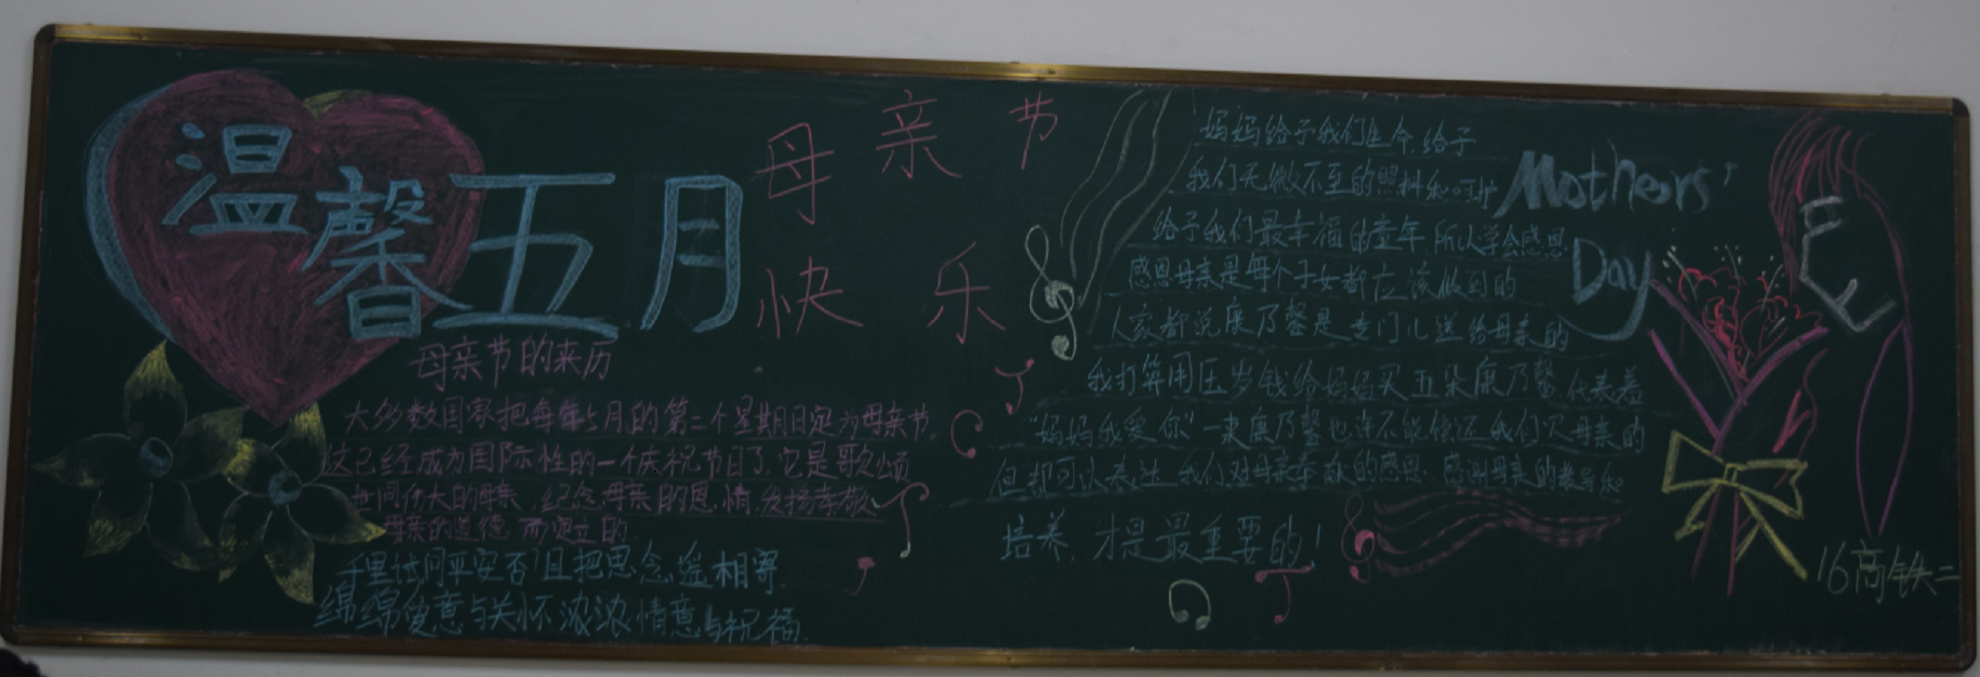 温馨五月
母亲节
快乐
母亲节的来历
大多数国家把每年5月的第二个星期日定为母亲节
这已经成为国际性的一个庆祝节日了,它是歌颂
世间伟大的母亲,纪念母亲的恩情,发扬孝敬
母亲的道德而定立的
千里试问平安否?且把思念遥相寄
绵绵爱意与关怀浓浓情意与祝福
妈妈给予我们生命,给予
我们无微不至的照料和呵护
给予我们最幸福的童年所以学会感恩
感恩母亲是每个子女都应该做到的
人家都说康乃馨是专门儿送给母亲的
我打算用压岁钱给妈妈买五朵康乃馨,代表着
“妈妈我爱你”一束康乃馨也许不能偿还我们欠母亲的
但却可以表达我们对母亲奉献的感恩.感谢母亲的教导和
培养,才是最重要的!
Mothers'
Day
16高铁二